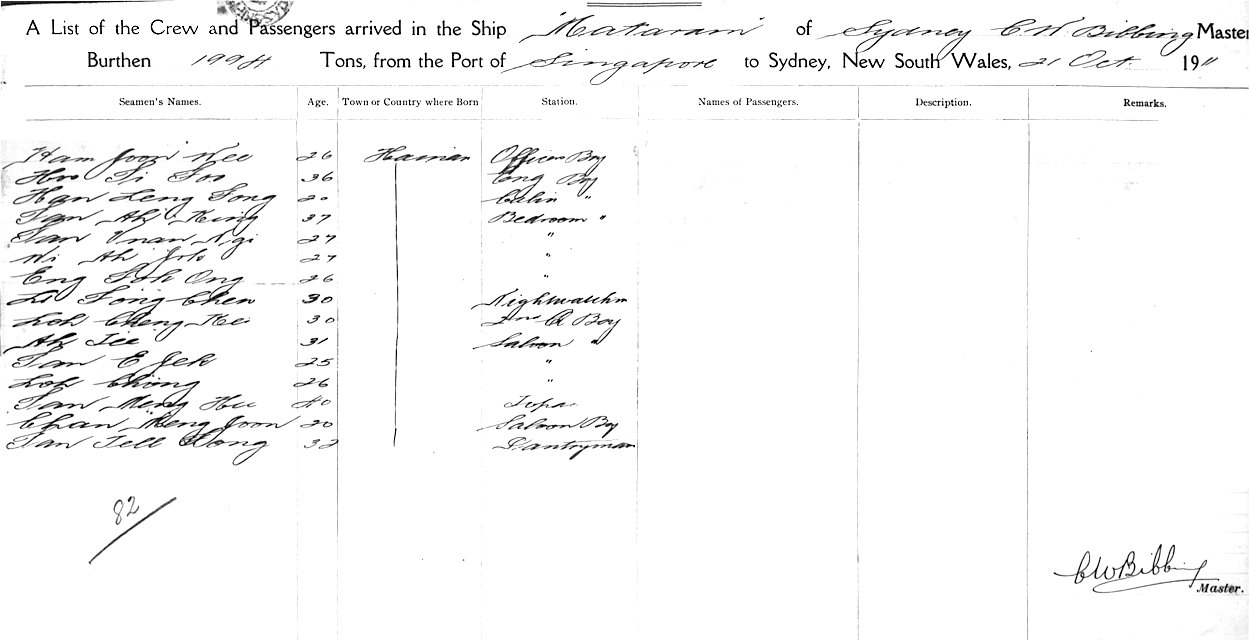 A List of the Crew and Passengers arrived in the Ship "Mataram" of Sydney C. W. Bibbing Master
Burthen Tons, from the Port of Singapore to Sydney, New South Wales, 21 Oct. 1911
Seamen's Names. Age. Town or Country where Born Station. Names of Passengers. Description. Remarks.
Ham Joon Kee 26 Hainan Officers Boy
Hoo Si Soo 36 Eng Boy
Han Leng Song 20 "
Tan Ah King 37 Bedroom "
Tan Ngi 27 "
Ah 27 "
Eng Ong 26 "
Li Fong Chen 30 Nightwatchm
Loh Cheng Kei 30 Boy
Ah Tee 31 Saloon "
Tan E Jek 25 "
Loh Chong 26 "
Tan Meng 40 Topas
Chan Meng Joon 20 Saloon Boy
Tan Tell 32 Pantryman
82
C W Bibbing
Master.